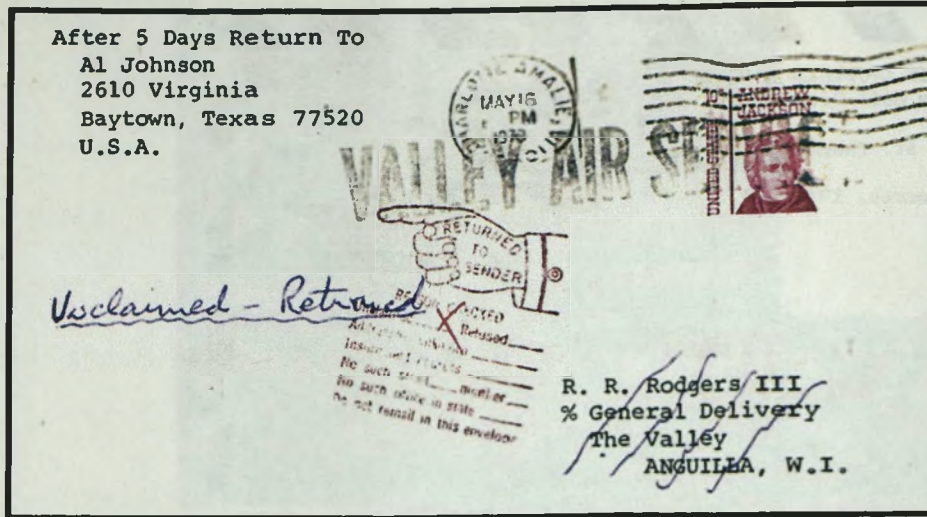 After 5 Days Return To
Al Johnson
2610 Virginia
Baytown, Texas 77520
U.S.A.
CHARLOTTE AMALIE, VI
MAY 16
PM
10c ANDREW
JACKSON
UNITED STATES
VALLEY AIR
RETURNED
TO
SENDER
Unclaimed - Returned
REASON CHECKED
Refused
No such street number
No such office in state
Do not remail in this envelope
R. R. Rodgers III
% General Delivery
The Valley
ANGUILLA, W.I.